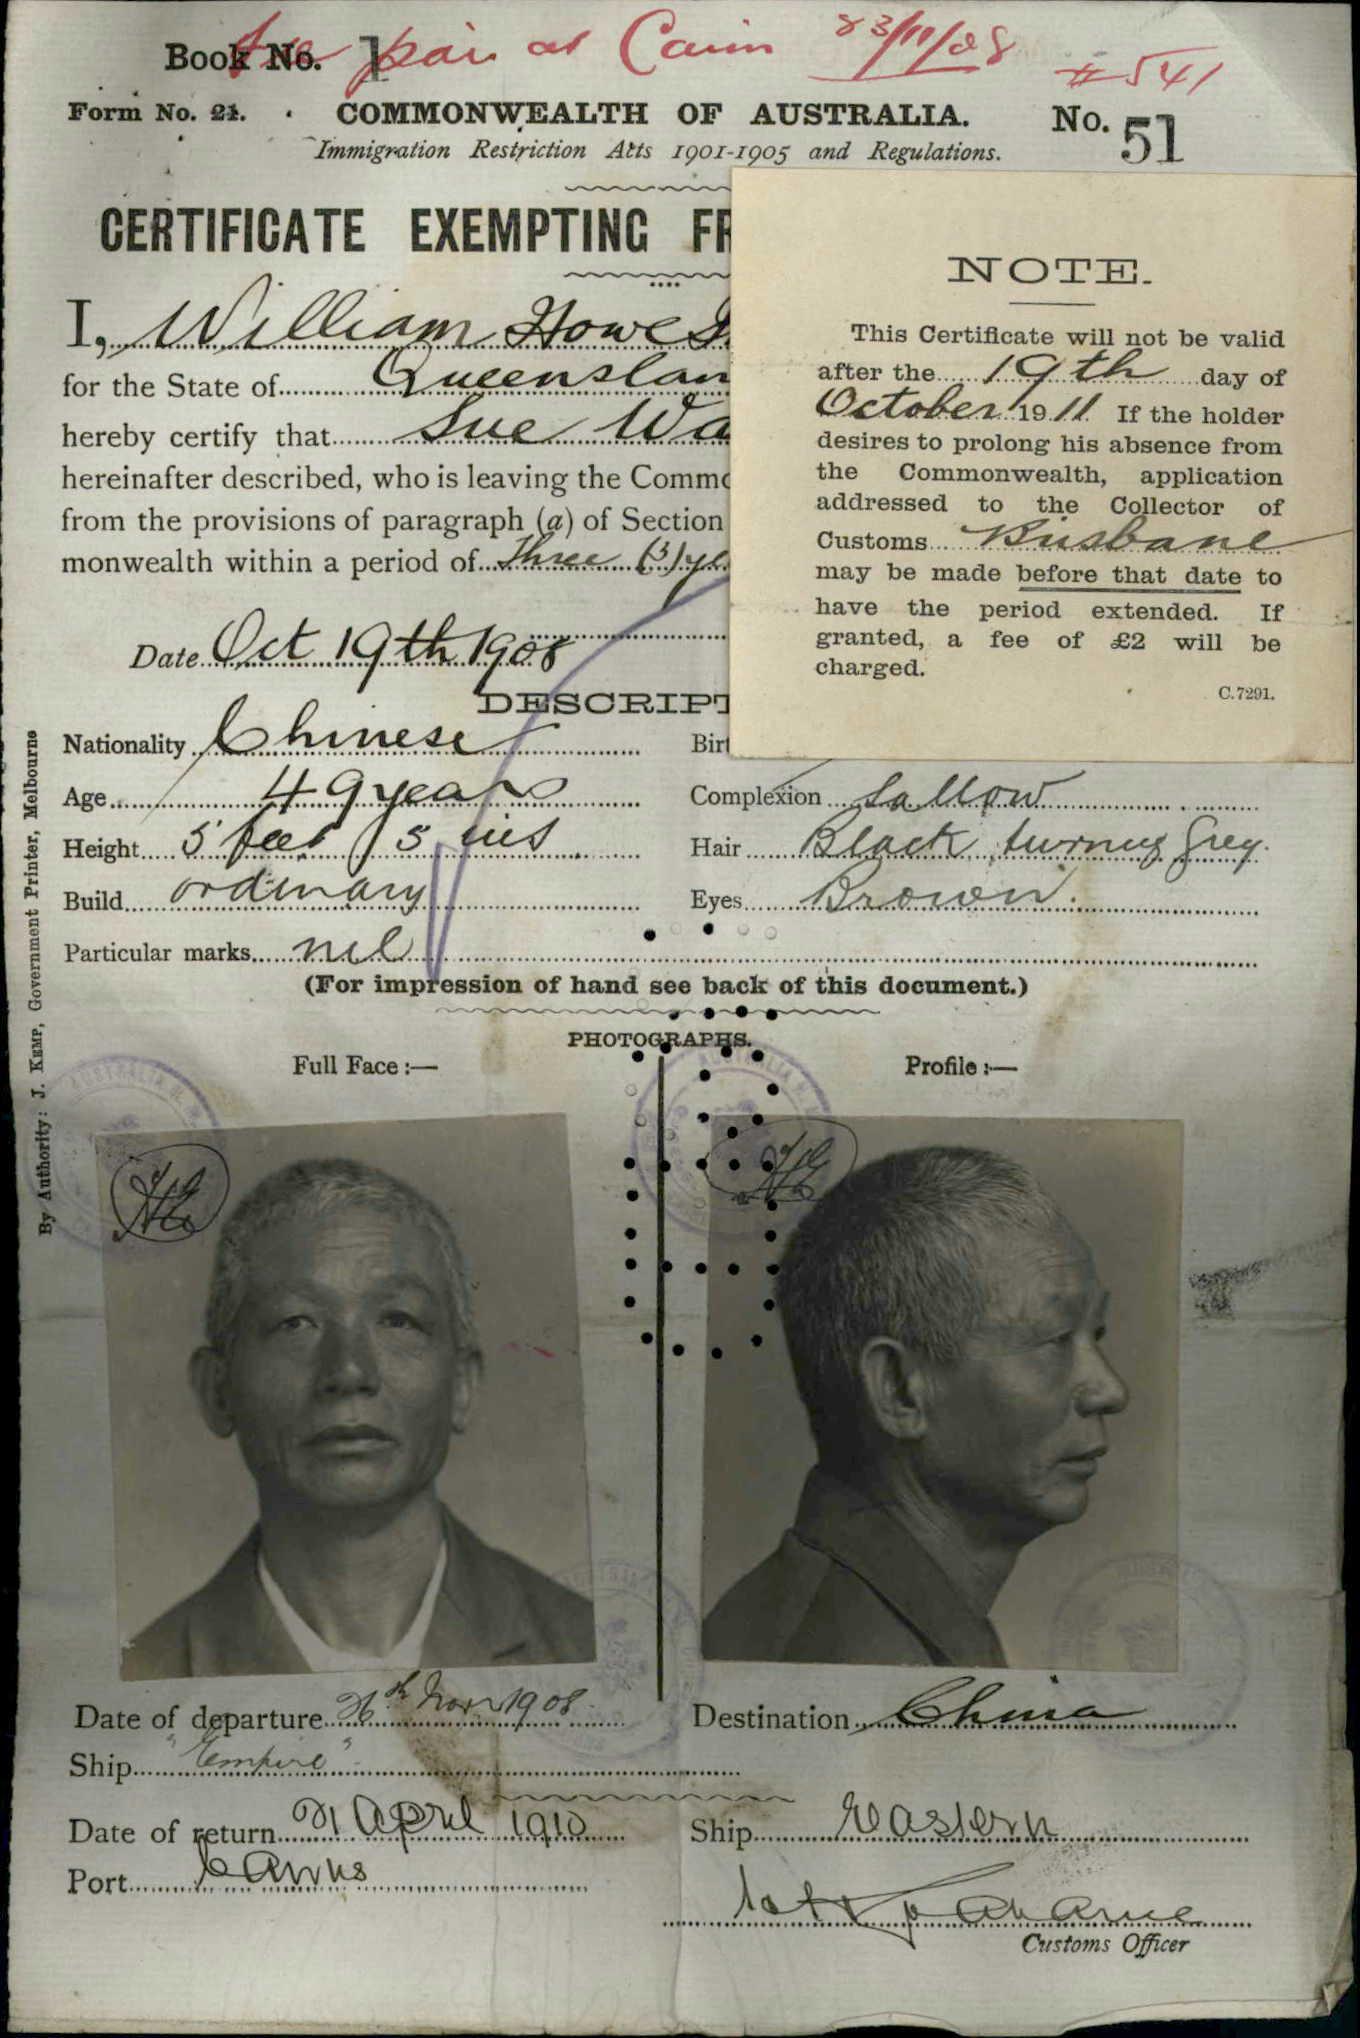 Book No. 1
Fee paid at Cairns 23/11/08
#541
Form No. 21. COMMONWEALTH OF AUSTRALIA. No. 51
Immigration Restriction Acts 1901-1905 and Regulations.
CERTIFICATE EXEMPTING FR
I, William Howe
for the State of Queenslan
hereby certify that Sue Wa
hereinafter described, who is leaving the Commo
from the provisions of paragraph (a) of Section
monwealth within a period of Three (3) ye
Date Oct 19th 1908
NOTE.
This Certificate will not be valid
after the 19th day of
October 1911 If the holder
desires to prolong his absence from
the Commonwealth, application
addressed to the Collector of
Customs Brisbane
may be made before that date to
have the period extended. If
granted, a fee of £2 will be
charged.
C.7291.
DESCRIPT
Nationality Chinese Birt
Age 49 years Complexion Sallow
Height 5 feet 5 ins Hair Black turning Grey.
Build ordinary Eyes Brown.
Particular marks nil
(For impression of hand see back of this document.)
PHOTOGRAPHS.
Full Face :— Profile :—
By Authority: J. KEMP, Government Printer, Melbourne
Date of departure 26th Novr 1908 Destination China
Ship "Empire"
Date of return 21 April 1910 Ship Eastern
Port Cairns
Customs Officer